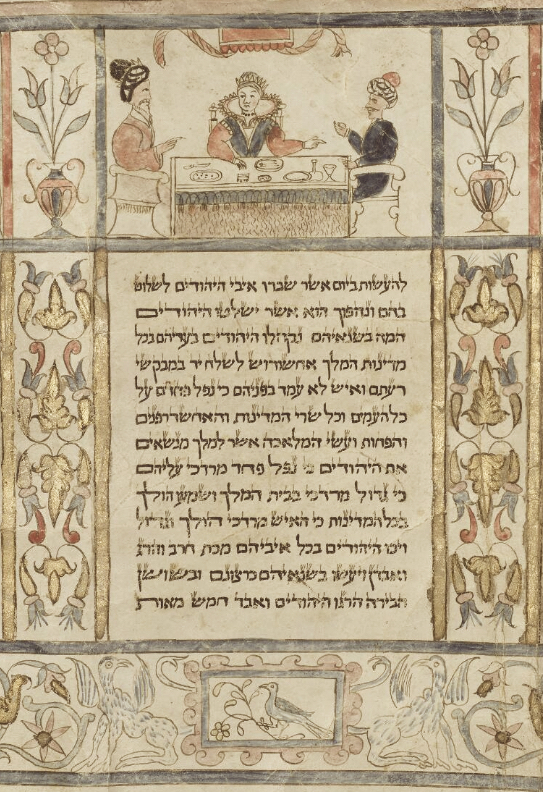 להעשות ביום אשר שברו איבי היהודים לשלוט
בהם ונהפוך הוא אשר ישלטו היהודים
המה בשנאיהם נקהלו היהודים בעריהם בכל
מדינות המלך אחשורוש לשלח יד במבקשי
רעתם ואיש לא עמד בפניהם כי נפל פחדם על
כל העמים וכל שרי המדינות והאחשדרפנים
והפחות ועשי המלאכה אשר למלך מנשאים
את היהודים כי נפל פחד מרדכי עליהם
כי גדול מרדכי בבית המלך ושמעו הולך
בכל המדינות כי האיש מרדכי הולך וגדול
ויכו היהודים בכל איביהם מכת חרב והרג
ואבדן ויעשו בשנאיהם כרצונם ובשושן
הבירה הרגו היהודים ואבד חמש מאות